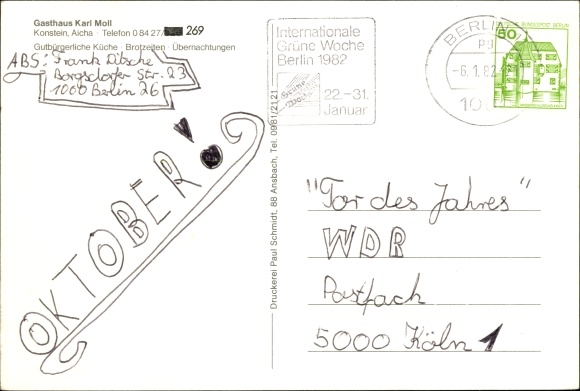 Gasthaus Karl Moll
Konstein, Aicha Telefon 0 84 27/ 269
Gutbürgerliche Küche · Brotzeiten · Übernachtungen
ABS: Frank Ditsche
Borgsdorfer Str. 23
1000 Berlin 26
OKTOBER!
Druckerei Paul Schmidt, 88 Ansbach, Tel. 0981/2121
Internationale
Grüne Woche
Berlin 1982
Grüne
Woche
22.–31.
Januar
BERLIN
-6.1.82
DEUTSCHE BUNDESPOST BERLIN
50
"Tor des Jahres"
WDR
Postfach
5000 Köln 1